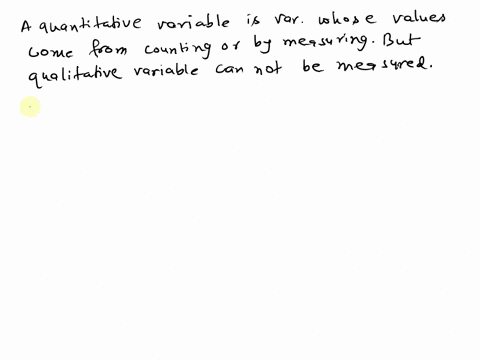 A quantitative variable is var. whose values
come from counting or by measuring. But
qualitative variable can not be measured.